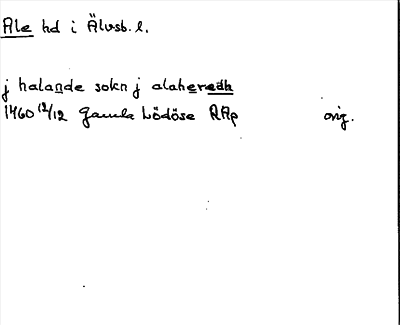 Ale hd i Älvsb. l.
j halande sokn j alaheredh
1460 12/12 Gamla Lödöse RAp orig.